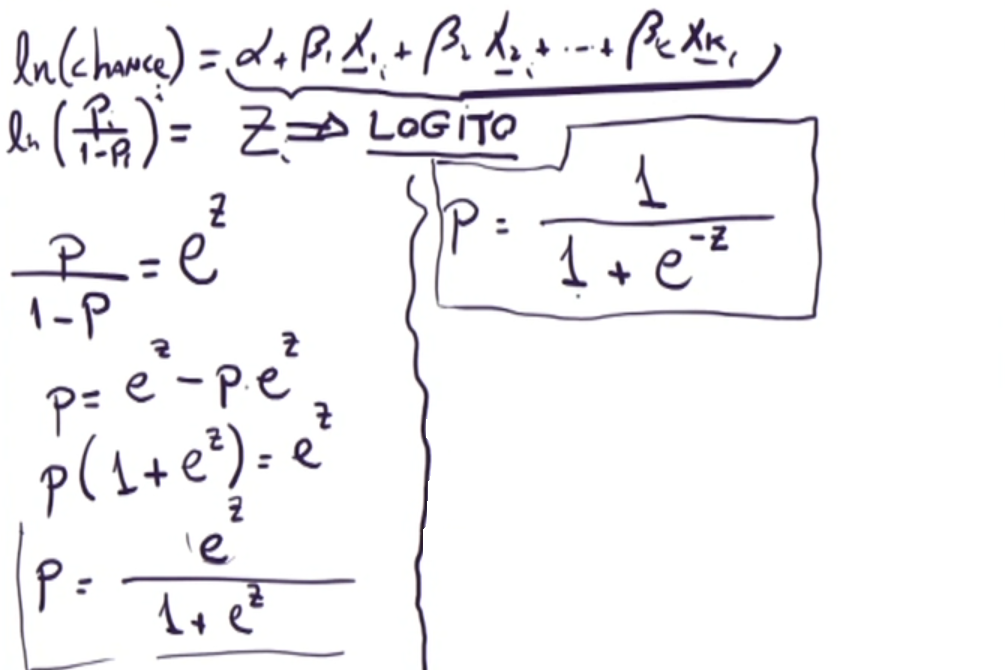 ln(chance_i) = α + β₁X₁ᵢ + β₂X₂ᵢ + ... + βₖXₖᵢ
ln(Pᵢ/(1-Pᵢ)) = Zᵢ ⇒ LOGITO
P/(1-P) = e^z
P = e^z - P.e^z
P(1 + e^z) = e^z
P = e^z/(1 + e^z)
P = 1/(1 + e^-z)